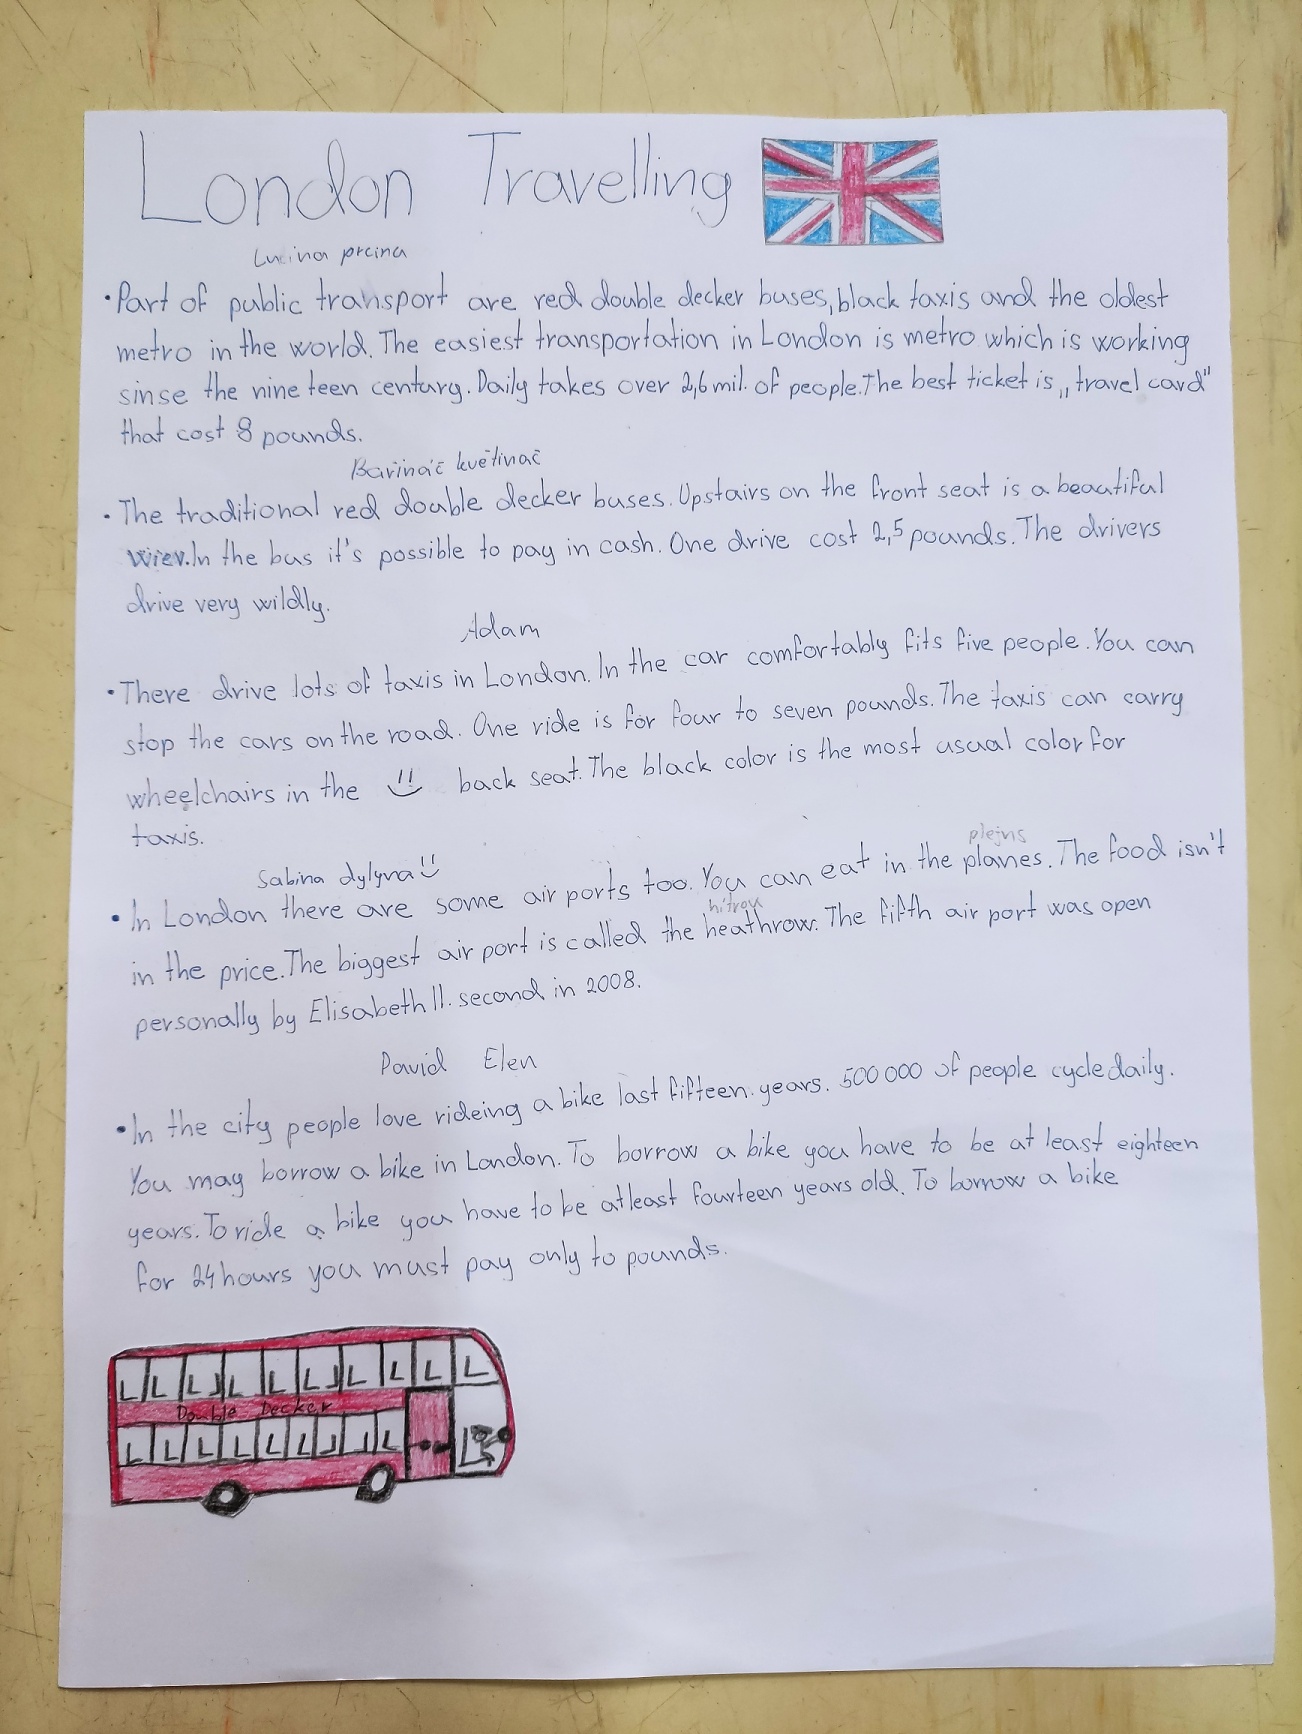 London Travelling
Lucina prcina
• Part of public transport are red double decker buses, black taxis and the oldest
metro in the world. The easiest transportation in London is metro which is working
sinse the nine teen century. Daily takes over 2,6 mil. of people. The best ticket is „travel card"
that cost 8 pounds.
Bařináč květináč
• The traditional red double decker buses. Upstairs on the front seat is a beautiful
wiev. In the bus it's possible to pay in cash. One drive cost 2,5 pounds. The drivers
drive very wildly.
Adam
• There drive lots of taxis in London. In the car comfortably fits five people. You can
stop the cars on the road. One ride is for four to seven pounds. The taxis can carry
wheelchairs in the back seat. The black color is the most usual color for
taxis.
Sabina dylyna
plejns
• In London there are some air ports too. You can eat in the planes. The food isn't
hítrou
in the price. The biggest air port is called the heathrow. The fifth air port was open
personally by Elisabeth II. second in 2008.
David Elen
• In the city people love rideing a bike last fifteen years. 500 000 of people cycle daily.
You may borrow a bike in London. To borrow a bike you have to be at least eighteen
years. To ride a bike you have to be atleast fourteen years old. To borrow a bike
for 24 hours you must pay only to pounds.
Double Decker